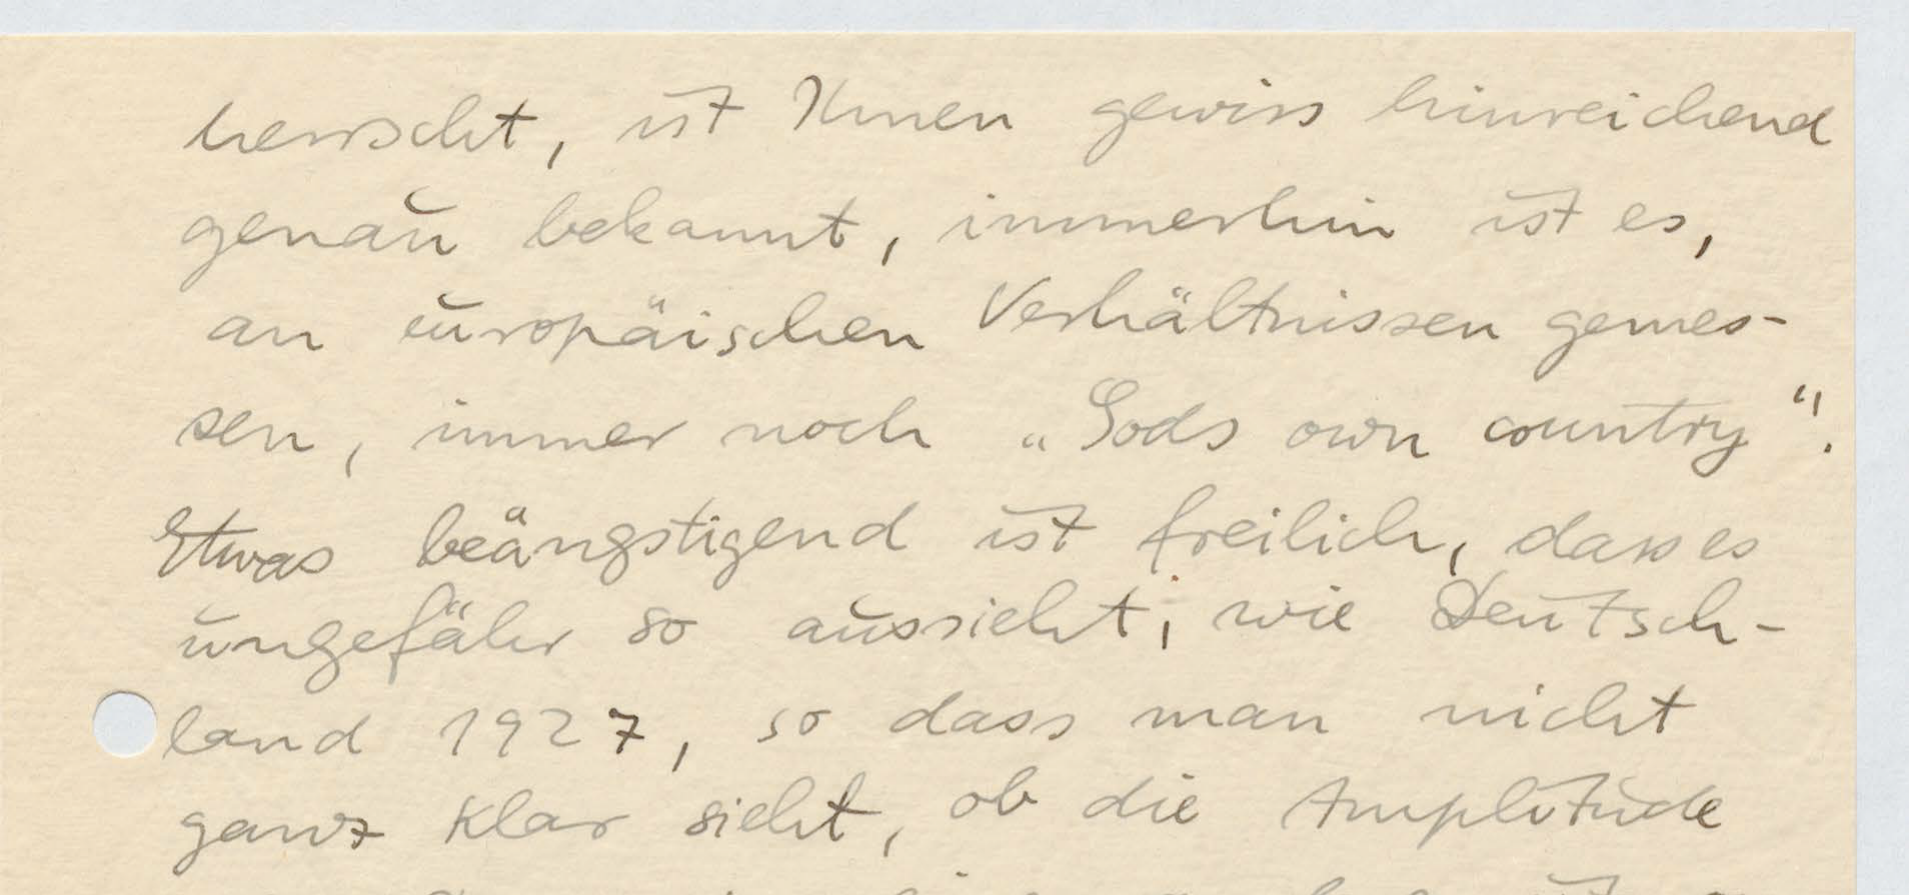 herrscht, ist Ihnen gewiss hinreichend
genau bekannt, immerhin ist es,
an europäischen Verhältnissen gemes-
sen, immer noch „Gods own country“.
Etwas beängstigend ist freilich, dass es
ungefähr so aussieht, wie Deutsch-
land 1927, so dass man nicht
ganz klar sieht, ob die Amplitude